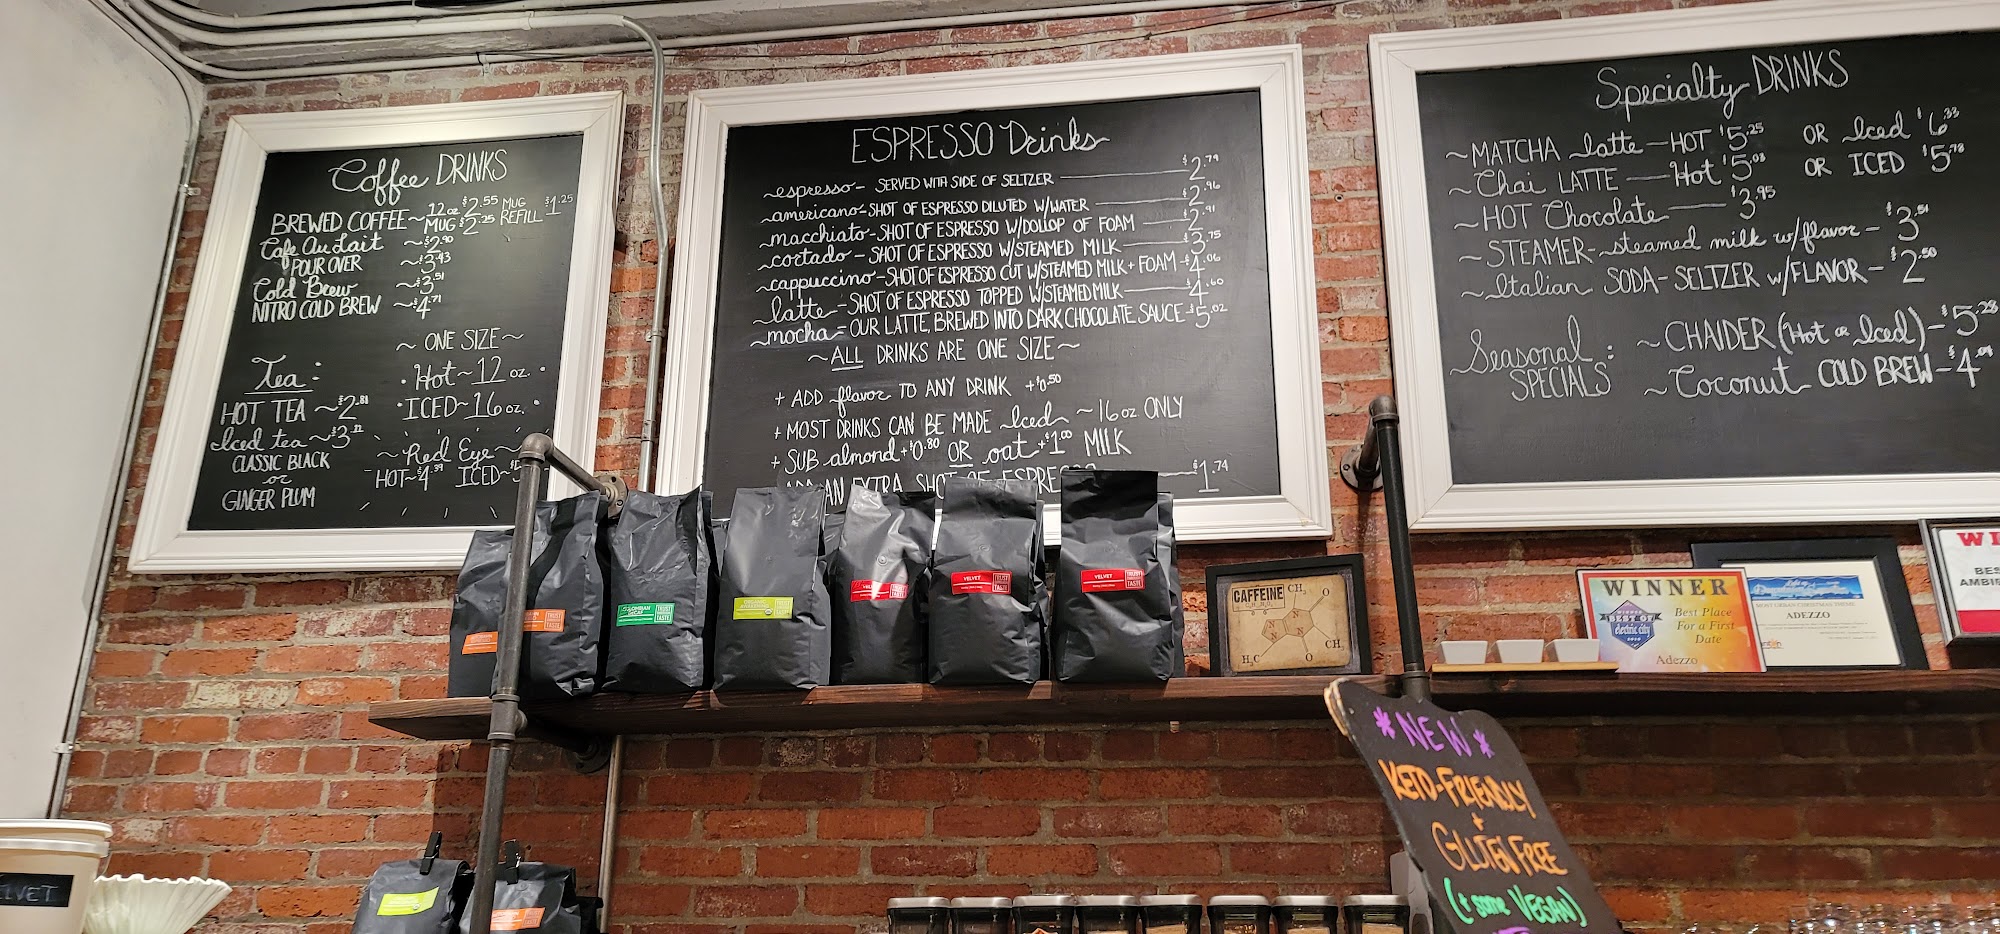 Coffee DRINKS
BREWED COFFEE ~ 12oz $2.55 MUG REFILL $1.25
MUG $2.25
Cafe Au Lait ~ $2.90
POUR OVER ~ $3.43
Cold Brew ~ $3.51
NITRO COLD BREW ~ $4.71
~ ONE SIZE ~
• Hot ~ 12 oz. •
• ICED ~ 16 oz. •
Tea:
HOT TEA ~ $2.81
Iced tea ~ $3.12
CLASSIC BLACK
or
GINGER PLUM
~ Red Eye ~
HOT ~ $4.39 ICED ~
ESPRESSO Drinks
~espresso - SERVED WITH SIDE OF SELTZER $2.79
~americano - SHOT OF ESPRESSO DILUTED W/WATER $2.96
~macchiato - SHOT OF ESPRESSO W/DOLLOP OF FOAM $2.91
~cortado - SHOT OF ESPRESSO W/STEAMED MILK $3.75
~cappuccino - SHOT OF ESPRESSO CUT W/STEAMED MILK + FOAM - $4.06
~latte - SHOT OF ESPRESSO TOPPED W/STEAMED MILK $4.60
~mocha - OUR LATTE, BREWED INTO DARK CHOCOLATE SAUCE - $5.02
~ ALL DRINKS ARE ONE SIZE ~
+ ADD flavor TO ANY DRINK + $0.50
+ MOST DRINKS CAN BE MADE Iced ~ 16oz ONLY
+ SUB almond + $0.80 OR oat + $1.00 MILK
AN EXTRA SHOT OF ESPRESSO $1.74
Specialty DRINKS
~ MATCHA latte - HOT $5.25 OR Iced $6.33
~ Chai LATTE - Hot $5.03 OR ICED $5.78
~ HOT Chocolate $3.95
~ STEAMER - steamed milk w/flavor - $3.51
~ Italian SODA - SELTZER w/FLAVOR - $2.50
Seasonal SPECIALS:
~ CHAIDER (Hot or Iced) - $5.28
~ Coconut COLD BREW - $4.09
COLOMBIAN DECAF
TRUST TASTE
ORGANIC
TRUST TASTE
VELVET
TRUST TASTE
VELVET
TRUST TASTE
VELVET
TRUST TASTE
CAFFEINE
CH3
O
N
N
N
N
CH3
H3C
O
WINNER
WINNER
BEST OF
electric city
Best Place
For a First
Date
Adezzo
MOST URBAN CHRISTMAS THEME
ADEZZO
WI
BES
AMBI
*NEW*
KETO-FRIENDLY
+
GLUTEN FREE
(+ some VEGAN)
ELVET